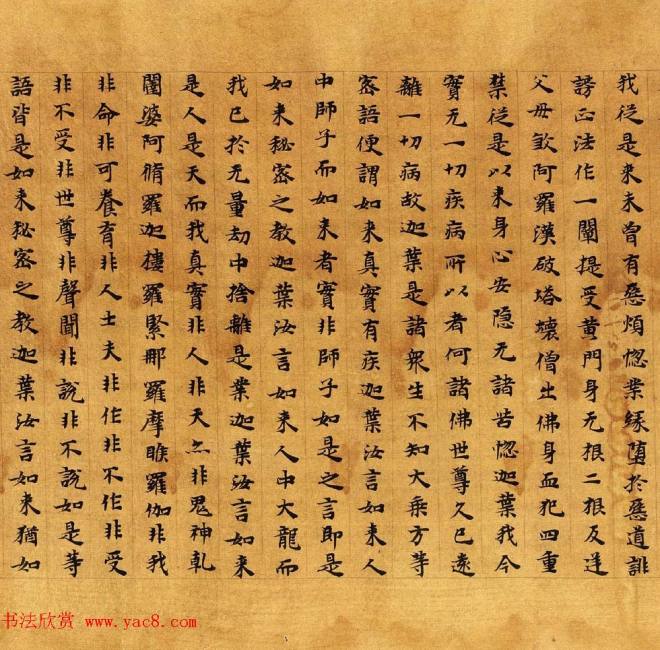 我従是來未曽有惡煩惱業縁墮於惡道誹
謗正法作一闡提受黄門身无根二根反逆
父母煞阿羅漢破塔壊僧出佛身血犯四重
禁従是以来身心安隠无諸苦惱迦葉我今
實无一切疾病所以者何諸佛世尊久已逺
離一切病故迦葉是諸衆生不知大乗方等
密語便謂如来真實有疾迦葉汝言如来人
中師子而如来者實非師子如是之言即是
如来秘密之教迦葉汝言如来人中大龍而
我已於无量劫中捨離是業迦葉汝言如来
是人是天而我真實非人非天亦非鬼神乹
闥婆阿脩羅迦樓羅緊那羅摩睺羅伽非我
非命非可養育非人士夫非作非不作非受
非不受非世尊非聲聞非説非不説如是等
語皆是如来秘密之教迦葉汝言如来猶如
书法欣赏 www.yac8.com